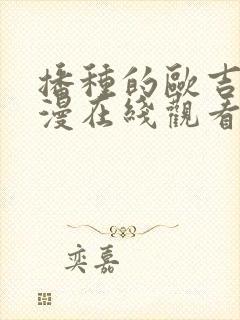 播種的歐吉
漫在綫觀看
奕嘉